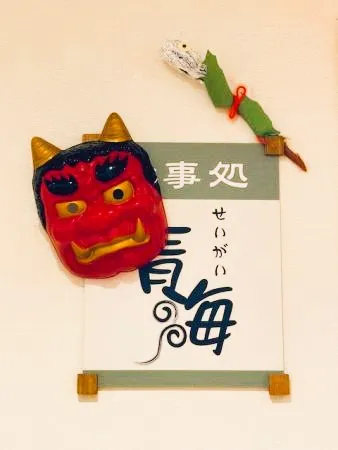 事処
せいがい
青海